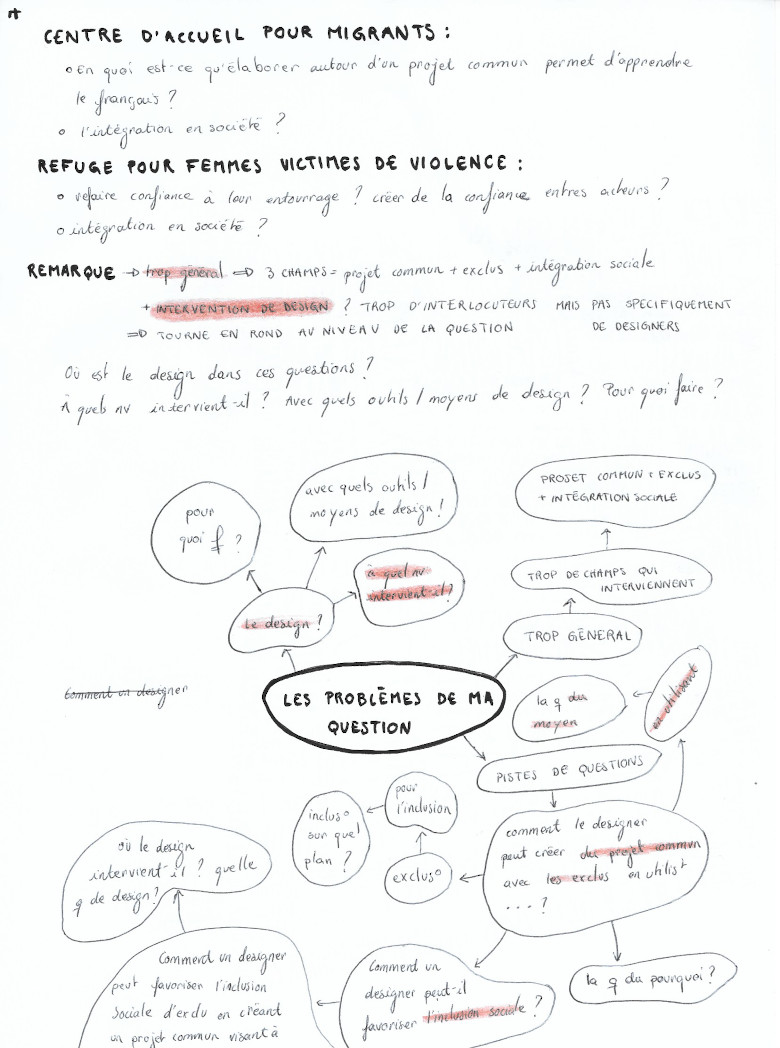 CENTRE D'ACCUEIL POUR MIGRANTS :
o En quoi est-ce qu'élaborer autour d'un projet commun permet d'apprendre
le français ?
o l'intégration en société ?
REFUGE POUR FEMMES VICTIMES DE VIOLENCE :
o refaire confiance à leur entourrage ? créer de la confiance entres acteurs ?
o intégration en société ?
REMARQUE → trop général ⇒ 3 CHAMPS = projet commun + exclus + intégration sociale
+ INTERVENTION DE DESIGN ? TROP D'INTERLOCUTEURS MAIS PAS SPECIFIQUEMENT
⇒ TOURNE EN ROND AU NIVEAU DE LA QUESTION DE DESIGNERS
Où est le design dans ces questions ?
À quels nv intervient-il ? Avec quels outils / moyens de design ? Pour quoi faire ?
pour
quoi f ?
avec quels outils /
moyens de design !
à quel nv
intervient-il ?
Le design ?
PROJET COMMUN + EXCLUS
+ INTÉGRATION SOCIALE
TROP DE CHAMPS QUI
INTERVIENNENT
TROP GÉNÉRAL
Comment un designer
LES PROBLÈMES DE MA
QUESTION
la q du
moyen
en utilisant
PISTES DE QUESTIONS
comment le designer
peut créer du projet commun
avec les exclus en utilist
. . . ?
exclus°
pour
l'inclusion
inclus°
sur quel
plan ?
la q du pourquoi ?
Comment un
designer peut-il
favoriser l'inclusion sociale ?
Comment un designer
peut favoriser l'inclusion
sociale d'exclu en créant
un projet commun visant à
où le design
intervient-il ? quelle
q de design ?